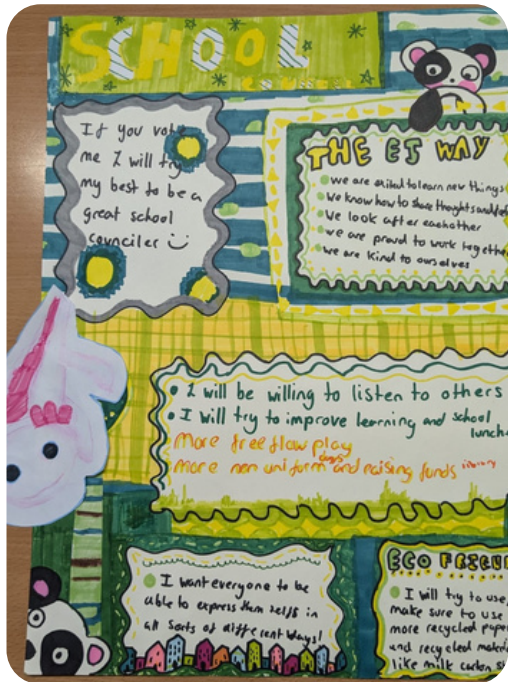 SCHOOL
council
If you vote
me I will try
my best to be a
great school
counciler
THE EJ WAY
we are exited to learn new things
We know how to share thoughts and
We look after eachother
we are proud to work together
we are kind to ourselves
I will be willing to listen to others
I will try to improve learning and school
lunch
More free flow play
days
more non uniform and raising funds library
I want everyone to be
able to express them selfs in
all sorts of different ways!
ECO FRIEN
I will try to use,
make sure to use
more recycled paper
and recycled
like milk